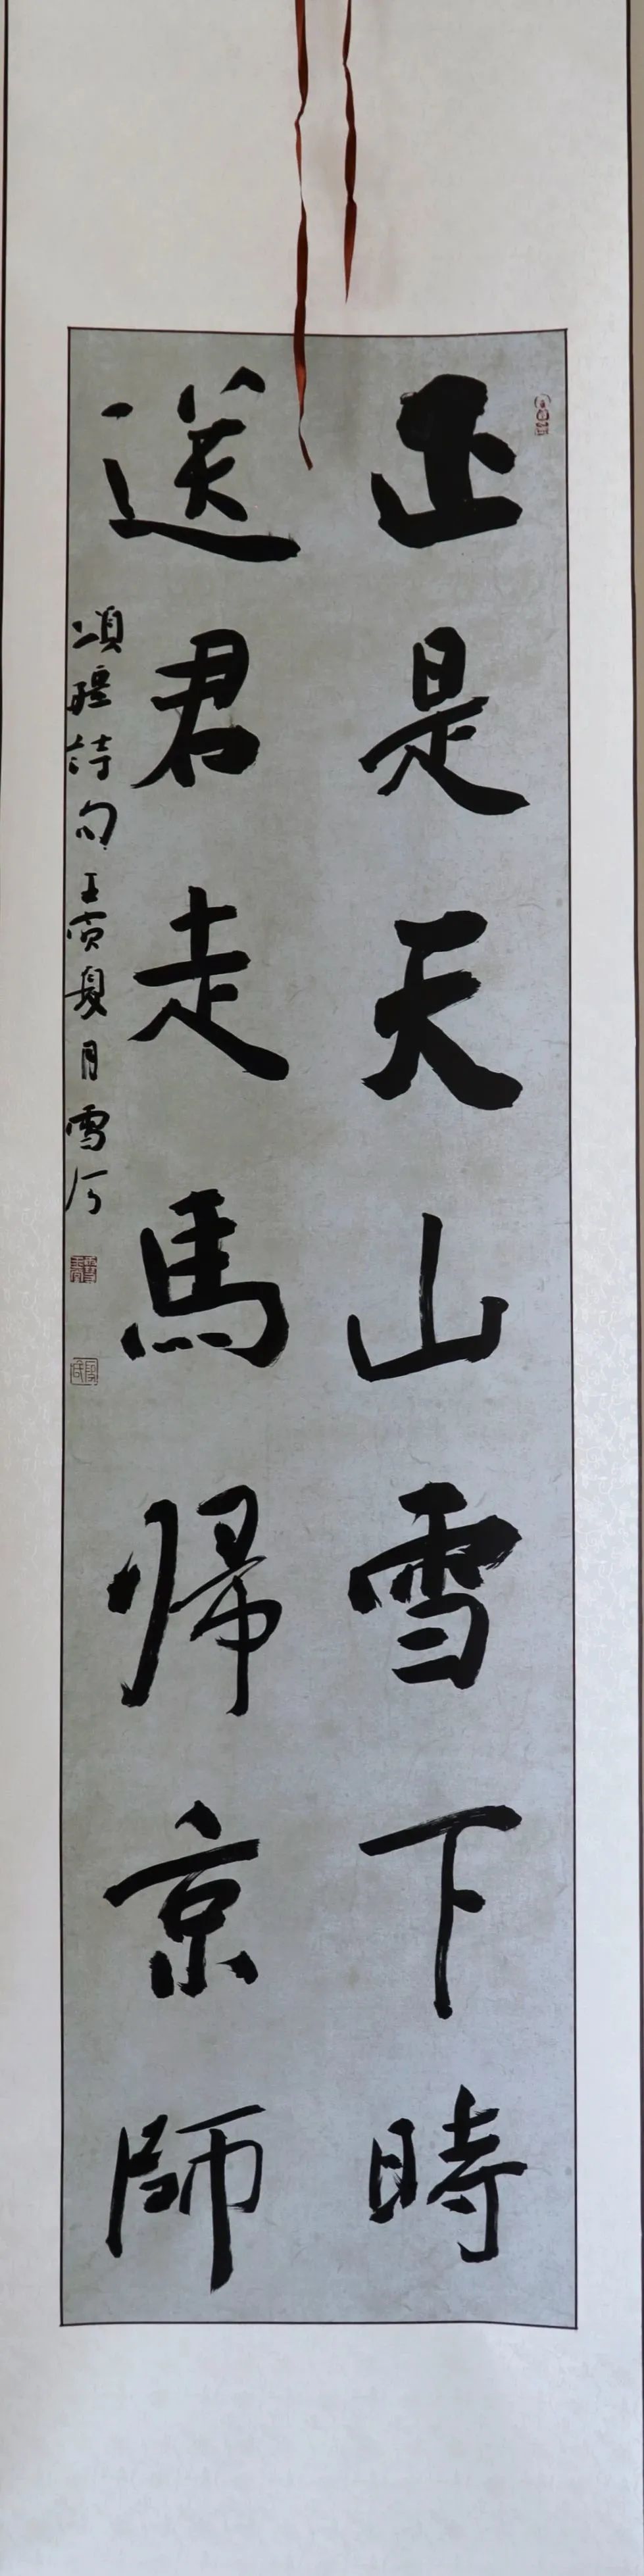 正是天山雪下時
送君走馬歸京師
頌疆詩句壬寅夏月雪今